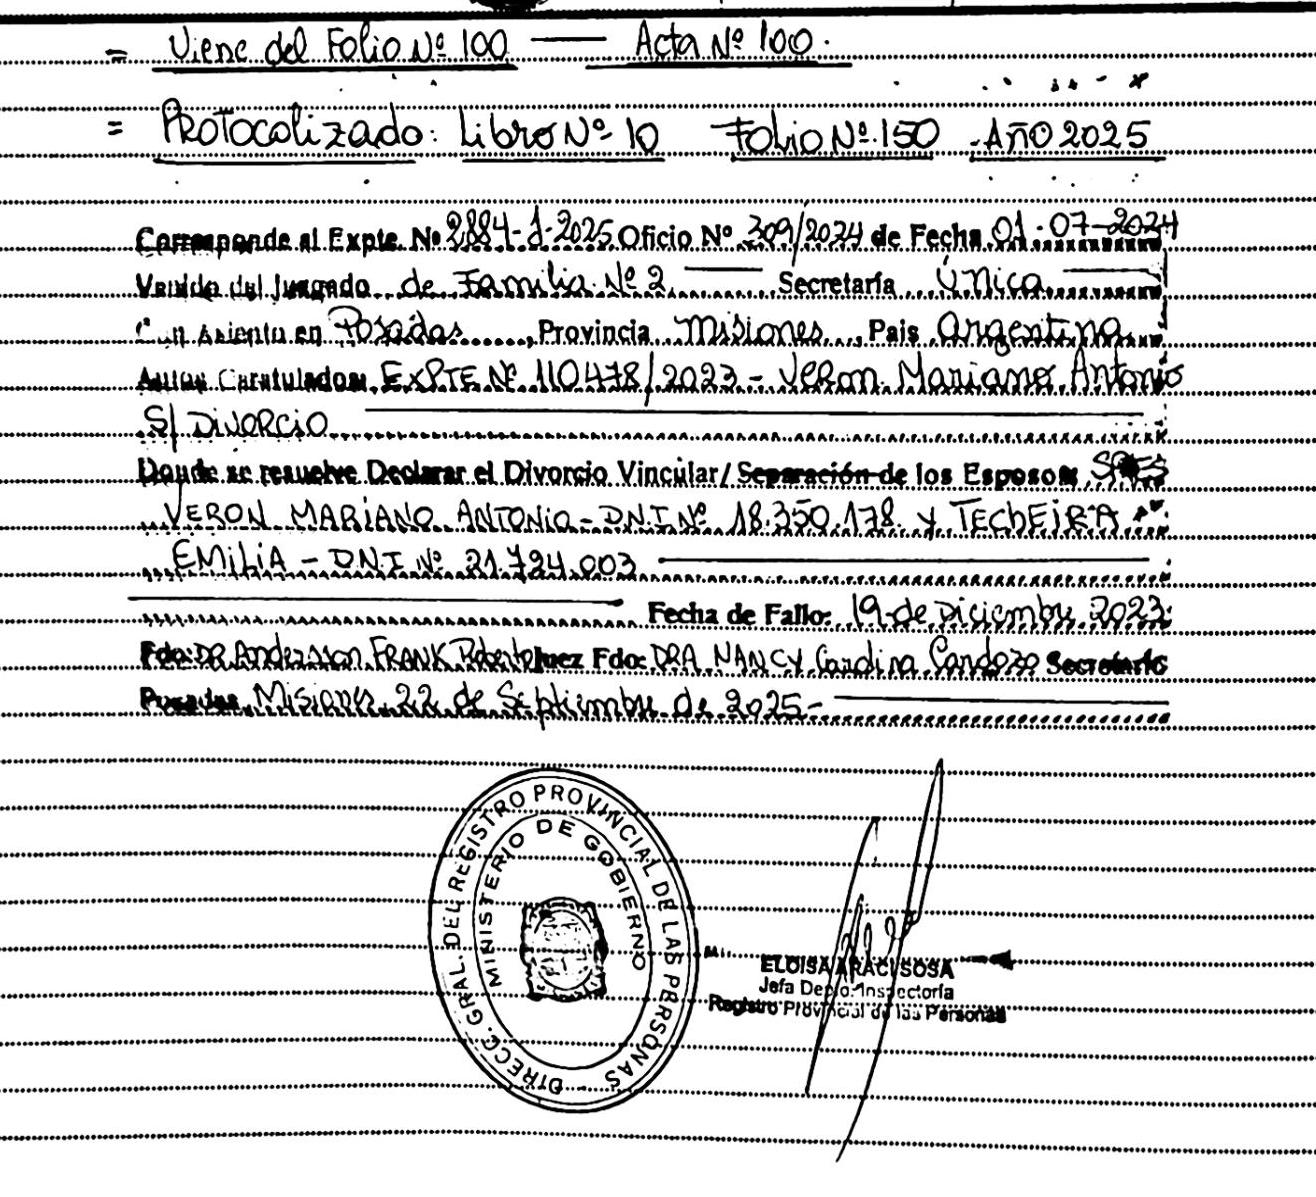 = Viene del Folio Nº 100 — Acta Nº 100.
= Protocolizado: Libro Nº 10 Folio Nº 150 - Año 2025
Corresponde al Expte. Nº 2884-J-2025 Oficio Nº 309/2024 de Fecha 01-07-2024
Venido del Juzgado de Familia Nº 2 — Secretaría Única
Con Asiento en Posadas, Provincia Misiones, Pais Argentina
Autos Caratulados: EXPTE Nº 110478/2023 - Veron Mariano Antonio
S/ Divorcio
Donde se resuelve Declarar el Divorcio Vincular/ Separación de los Esposos
VERON MARIANO ANTONIO - DNI Nº 18.350.178 y TECHEIRA
EMILIA - DNI Nº 21.724.003
Fecha de Fallo: 19 de Diciembre 2023
Fdo: DR Andersson FRANK Roberto Juez Fdo: DRA NANCY Carolina Cardozo Secretario
Posadas, Misiones, 22 de Septiembre de 2025-
DIRECC. GRAL. DEL REGISTRO PROVINCIAL DE LAS PERSONAS -
MINISTERIO DE GOBIERNO
ELOISA ARACI SOSA
Jefa Depto. Inspectoría
Registro Provincial de las Personas